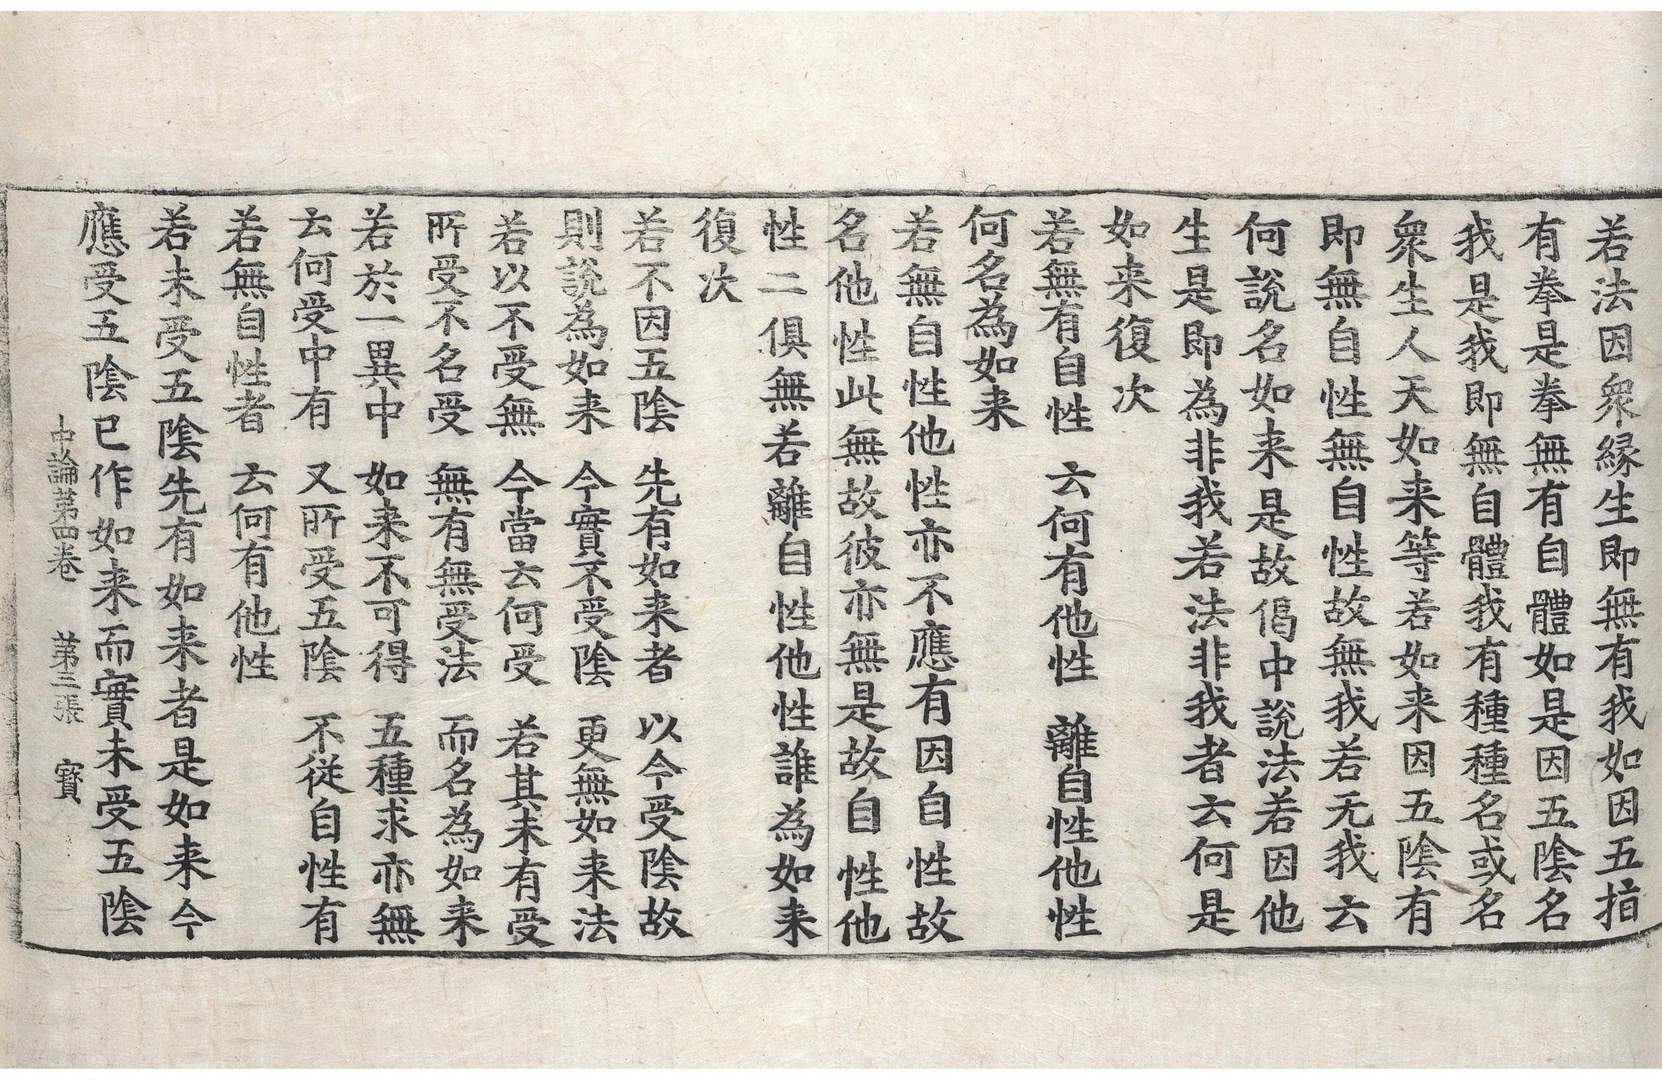 若法因衆縁生即無有我如因五指
有拳是拳無有自體如是因五陰名
我是我即無自體我有種種名或名
衆生人天如来等若如来因五陰有
即無自性無自性故無我若无我云
何說名如来是故偈中說法若因他
生是即為非我若法非我者云何是
如来復次
若無有自性 云何有他性 離自性他性
何名為如来
若無自性他性亦不應有因自性故
名他性此無故彼亦無是故自性他
性二俱無若離自性他性誰為如来
復次
若不因五陰 先有如来者 以今受陰故
則說為如来 今實不受陰 更無如来法
若以不受無 今當云何受 若其未有受
所受不名受 無有無受法 而名為如来
若於一異中 如来不可得 五種求亦無
云何受中有 又所受五陰 不從自性有
若無自性者 云何有他性
若未受五陰先有如来者是如来今
應受五陰已作如来而實未受五陰
中論第四卷 第三張 寳